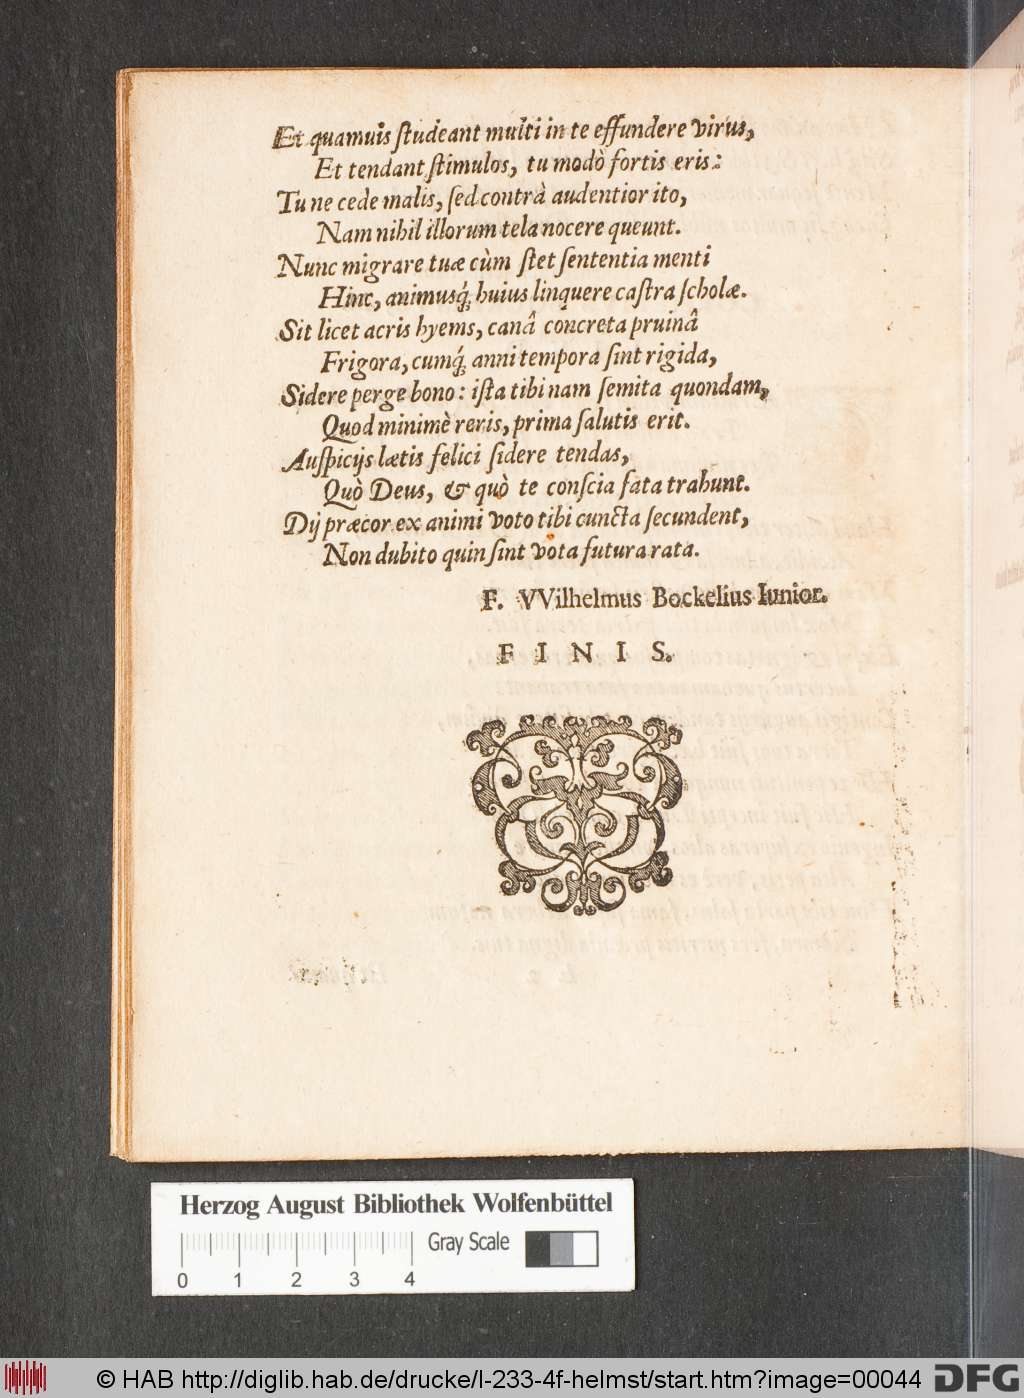 Et quamuis ſtudeant multi in te effundere virus,
Et tendant ſtimulos, tu modò fortis eris:
Tu ne cede malis, ſed contrà audentior ito,
Nam nihil illorum tela nocere queunt.
Nunc migrare tuæ cùm ſtet ſententia menti
Hinc, animusq́; huius linquere caſtra ſcholæ.
Sit licet acris hyems, canâ concreta pruinâ
Frigora, cumq́; anni tempora ſint rigida,
Sidere perge bono: iſta tibi nam ſemita quondam,
Quod minimè reris, prima ſalutis erit.
Auſpicijs lætis felici ſidere tendas,
Quò Deus, & quò te conſcia fata trahunt.
Dij præcor ex animi voto tibi cuncta ſecundent,
Non dubito quin ſint vota futura rata.
F. VVilhelmus Bockelius Iunior.
F I N I S.
Herzog August Bibliothek Wolfenbüttel
Gray Scale
0 1 2 3 4
© HAB http://diglib.hab.de/drucke/l-233-4f-helmst/start.htm?image=00044
DFG